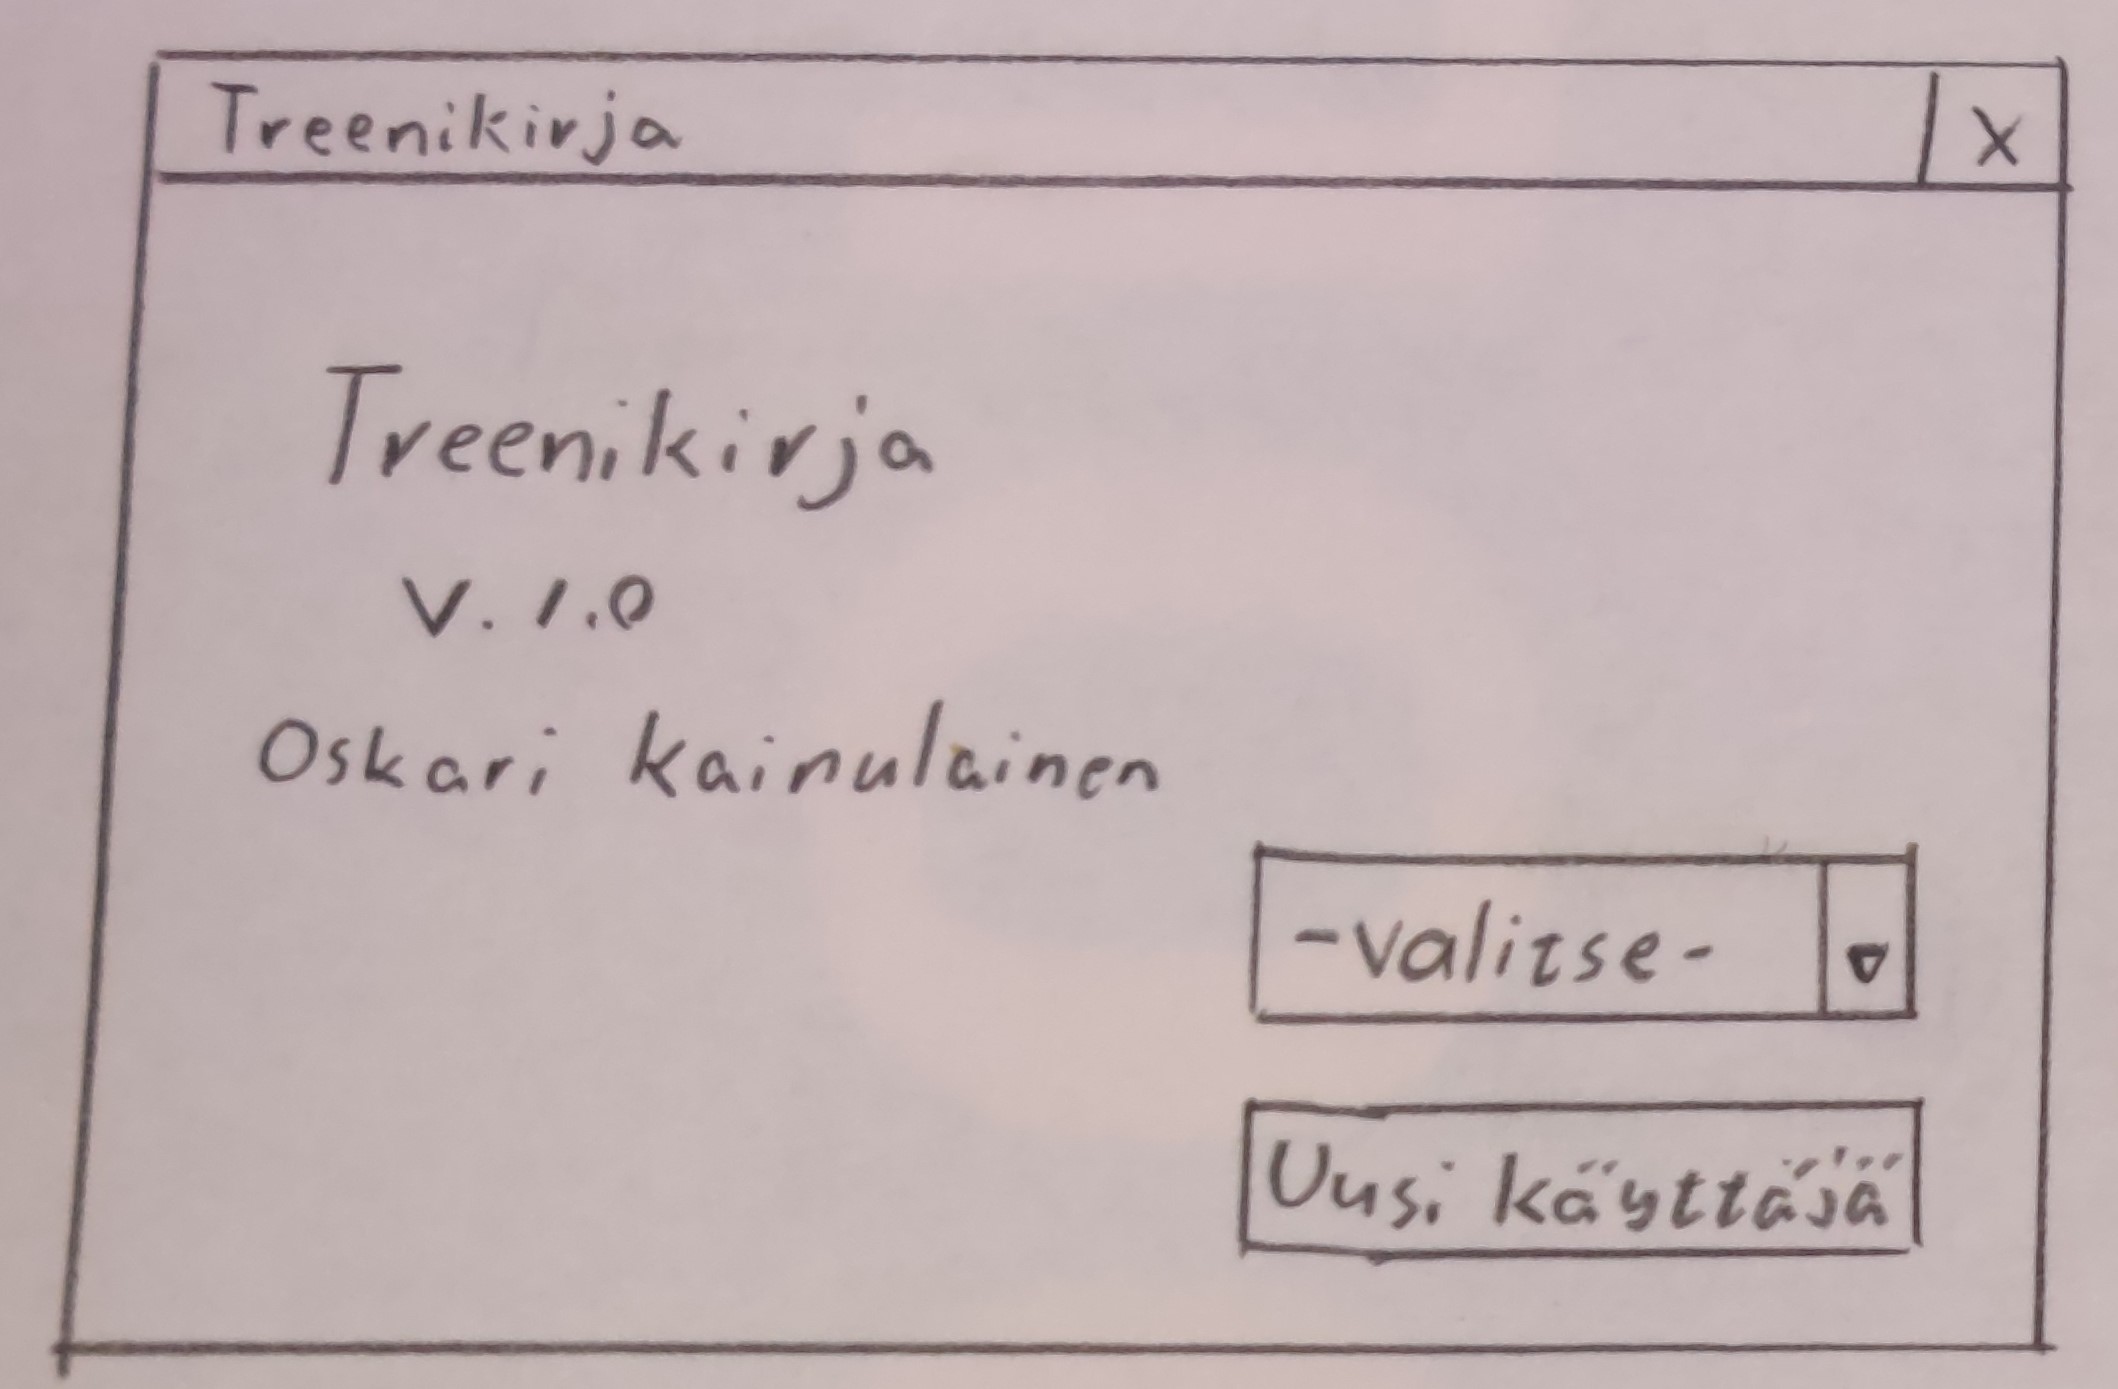 Treenikirja X
Treenikirja
V. 1.0
Oskari Kainulainen
-valitse-
Uusi käyttäjä